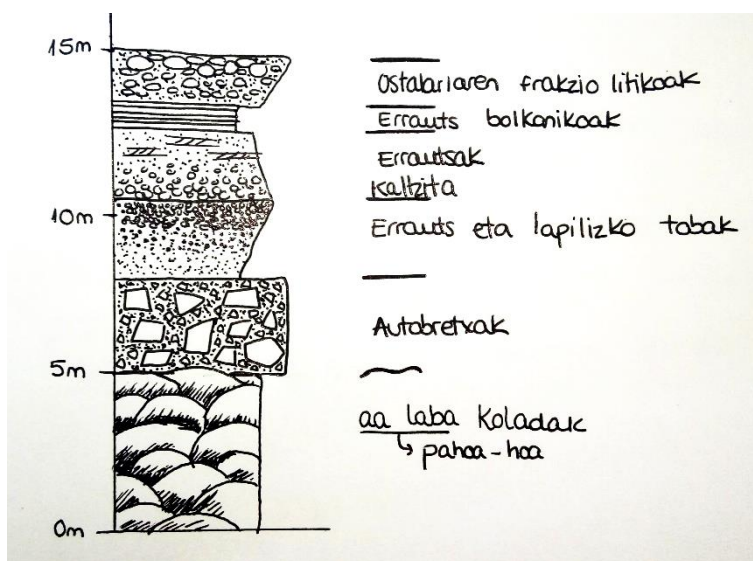 15m
Ostalariaren frakzio litikoak
Errauts bolkanikoak
Errautsak
Kaltzita
10m
Errauts eta lapilizko tobak
Autobretxak
5m
aa laba Koladak
pahoa-hoa
0m